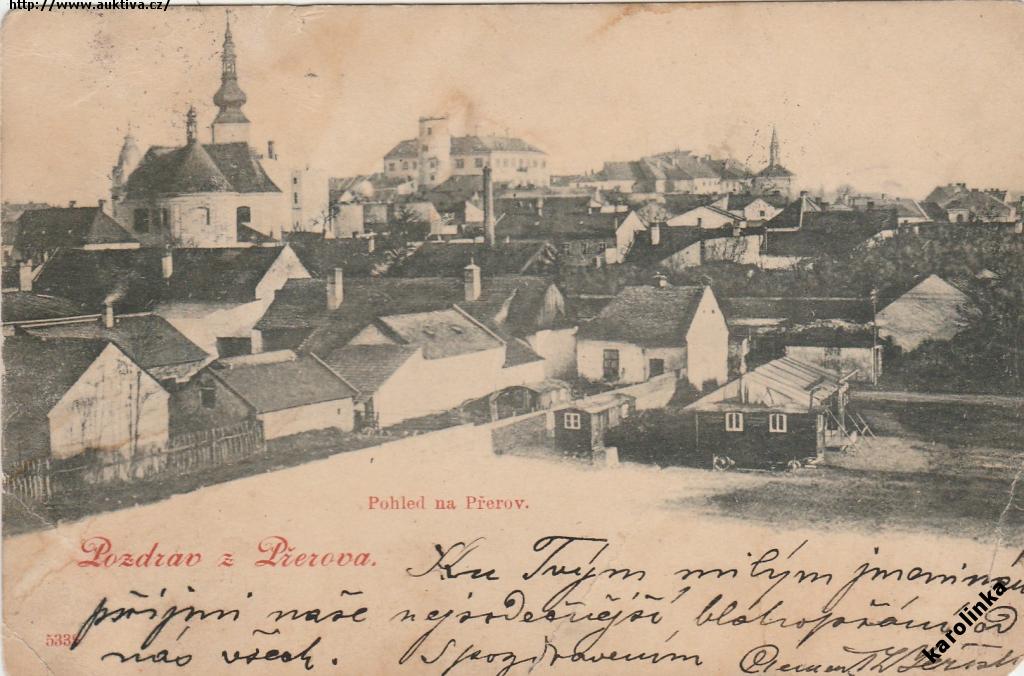 http://www.auktiva.cz/
Pohled na Přerov.
Pozdrav z Přerova.
Ku Tvým milým jmeninám
přijmi naše nejsrdečnější blahopřání od
5338
nás všech. S pozdravením
karolinka